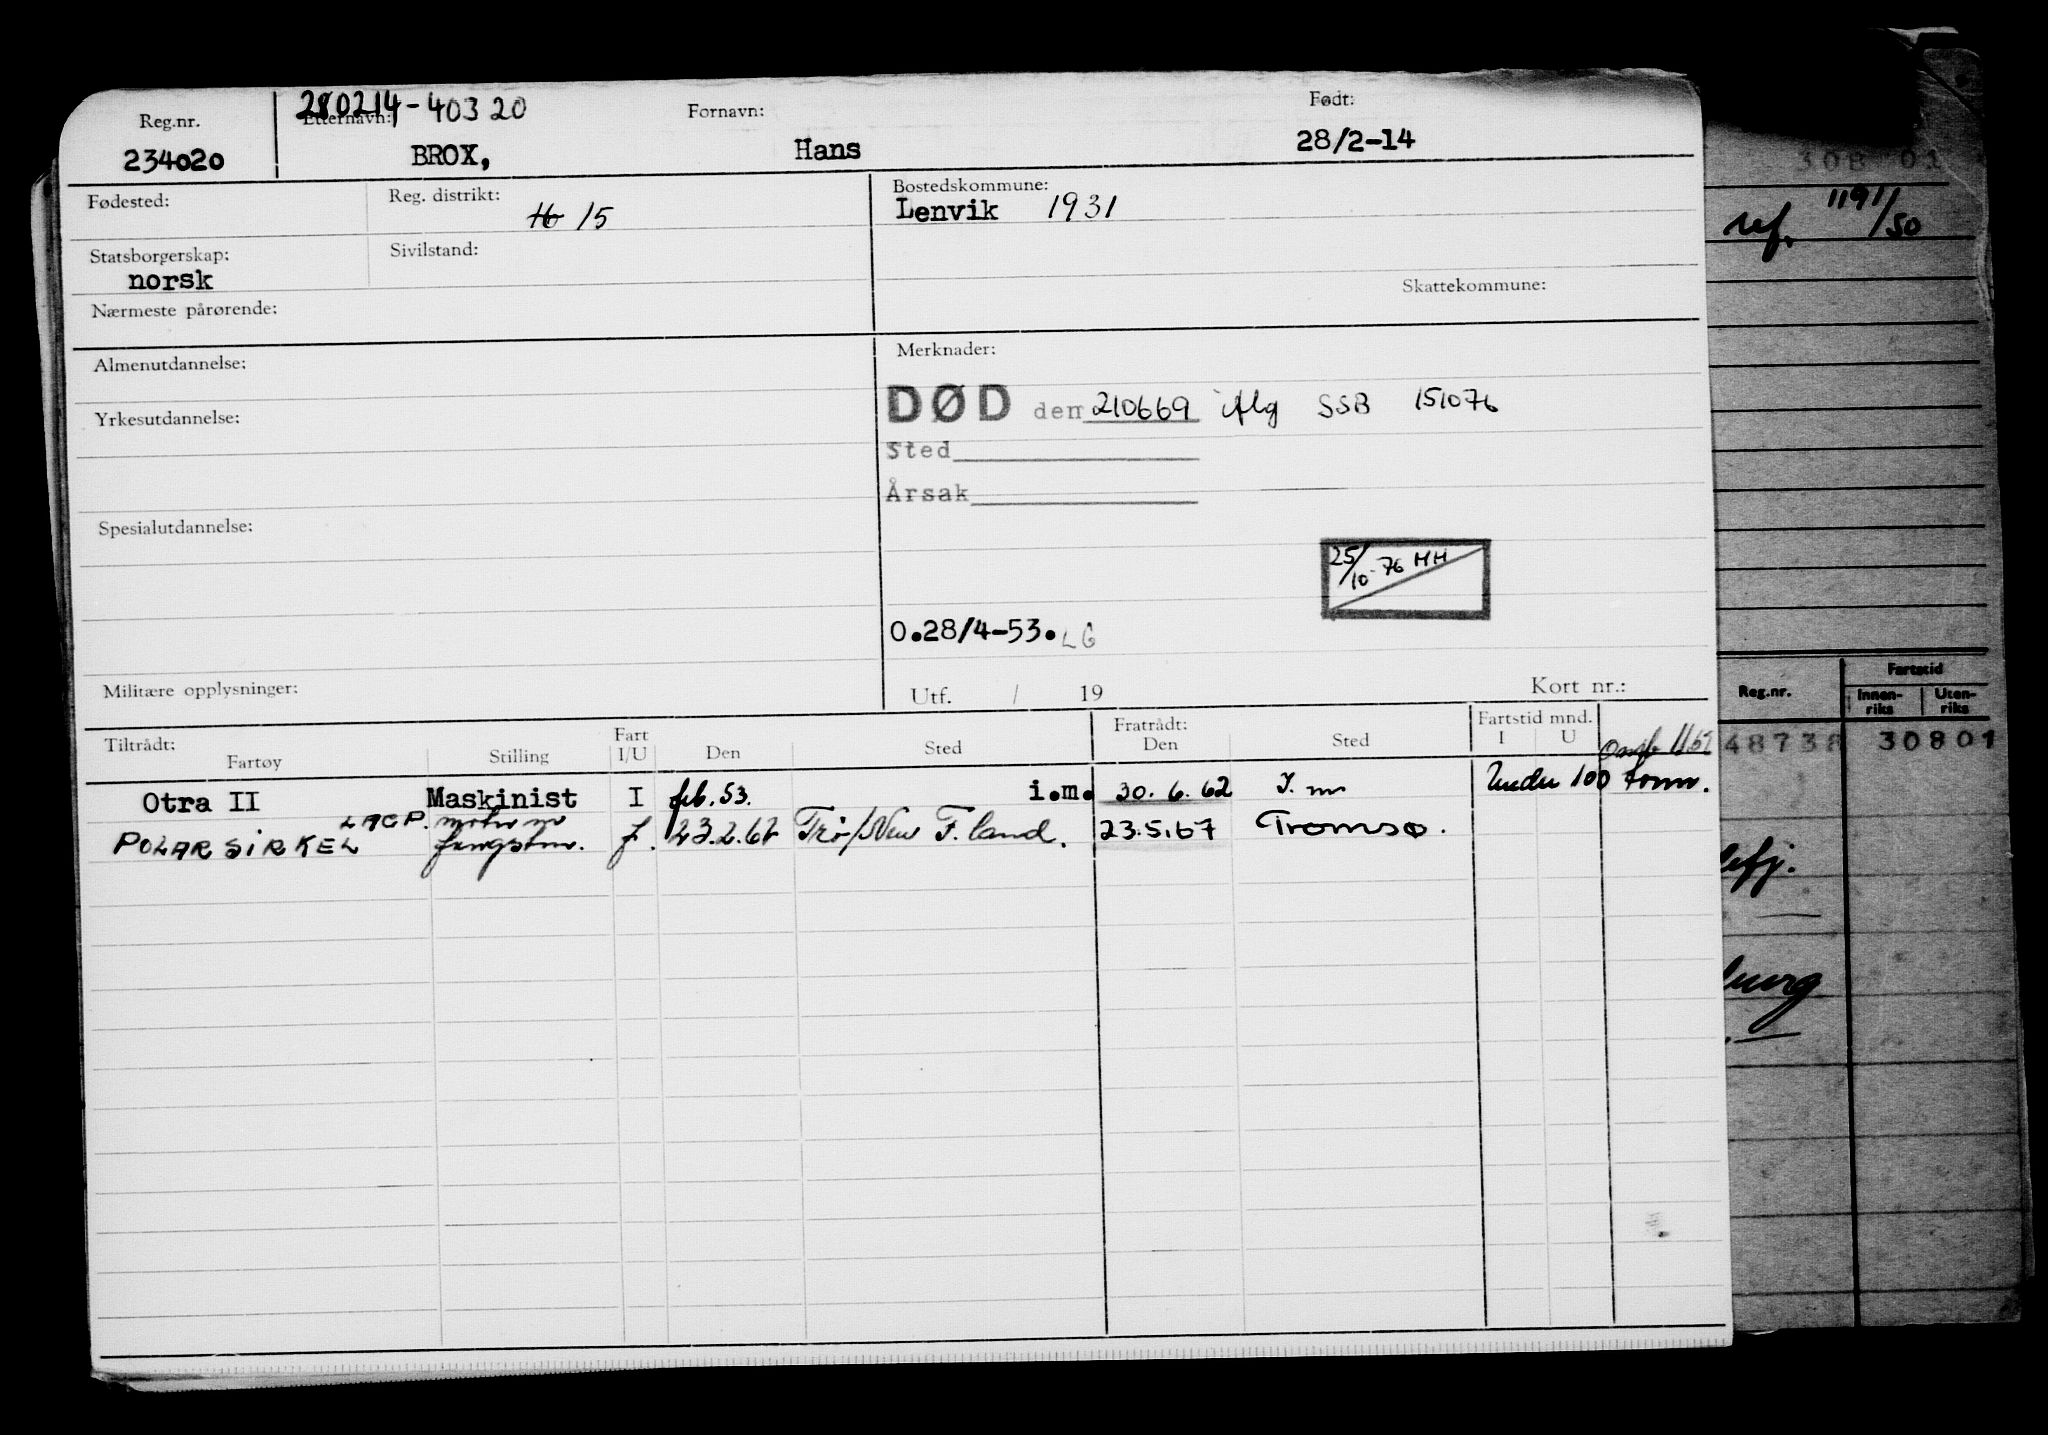 280214-40320
Reg.nr. Etternavn: Fornavn: Født:
234020 BROX, Hans 28/2-14
Fødested: Reg. distrikt: 16 15 Bostedskommune: Lenvik 1931
Statsborgerskap: norsk Sivilstand:
Skattekommune:
Nærmeste pårørende:
Almenutdannelse: Merknader:
DØD den 210669 iflg SSB 151076
Yrkesutdannelse:
Sted
Årsak
Spesialutdannelse:
25/10-76 HH
0.28/4-53. LG
Militære opplysninger: Utf. / 19 Kort nr.:
Tiltrådt: Fratrådt: Fartstid mnd.
Fartøy Stilling Fart I/U Den Sted Den Sted I U
Otra II Maskinist I feb. 53. i.m. 30.6.62 I. m Under 100 tonn.
POLARSIRKEL fangstm. f. 23.2.67 Trø/New F. land. 23.5.67 Tromsø.
308 01
ref. 1191/50
Fartstid
Reg.nr. Innen-riks Uten-riks
48738 30801